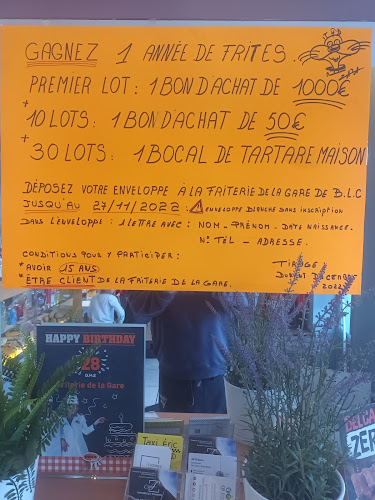 GAGNEZ 1 ANNÉE DE FRITES.
PREMIER LOT : 1 BON D'ACHAT DE 1000€
+ 10 LOTS : 1 BON D'ACHAT DE 50€
+ 30 LOTS : 1 BOCAL DE TARTARE MAISON
DÉPOSEZ VOTRE ENVELOPPE À LA FRITERIE DE LA GARE DE B.L.C
JUSQU'AU 27/11/2022 : ⚠ ENVELOPPE BLANCHE SANS INSCRIPTION
DANS L'ENVELOPPE : 1 LETTRE AVEC : NOM - PRÉNOM - DATE NAISSANCE.
N° TÉL - ADRESSE.
CONDITIONS POUR Y PARTICIPER :
* AVOIR 15 ANS
* ÊTRE CLIENT DE LA FRITERIE DE LA GARE.
TIRAGE
DURANT DÉCEMBRE
2022
HAPPY BIRTHDAY
28
ans
Friterie de la Gare
Taxi Eric
ZER